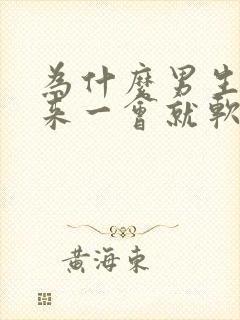 為什麼男生
來一會就軟
黃海東